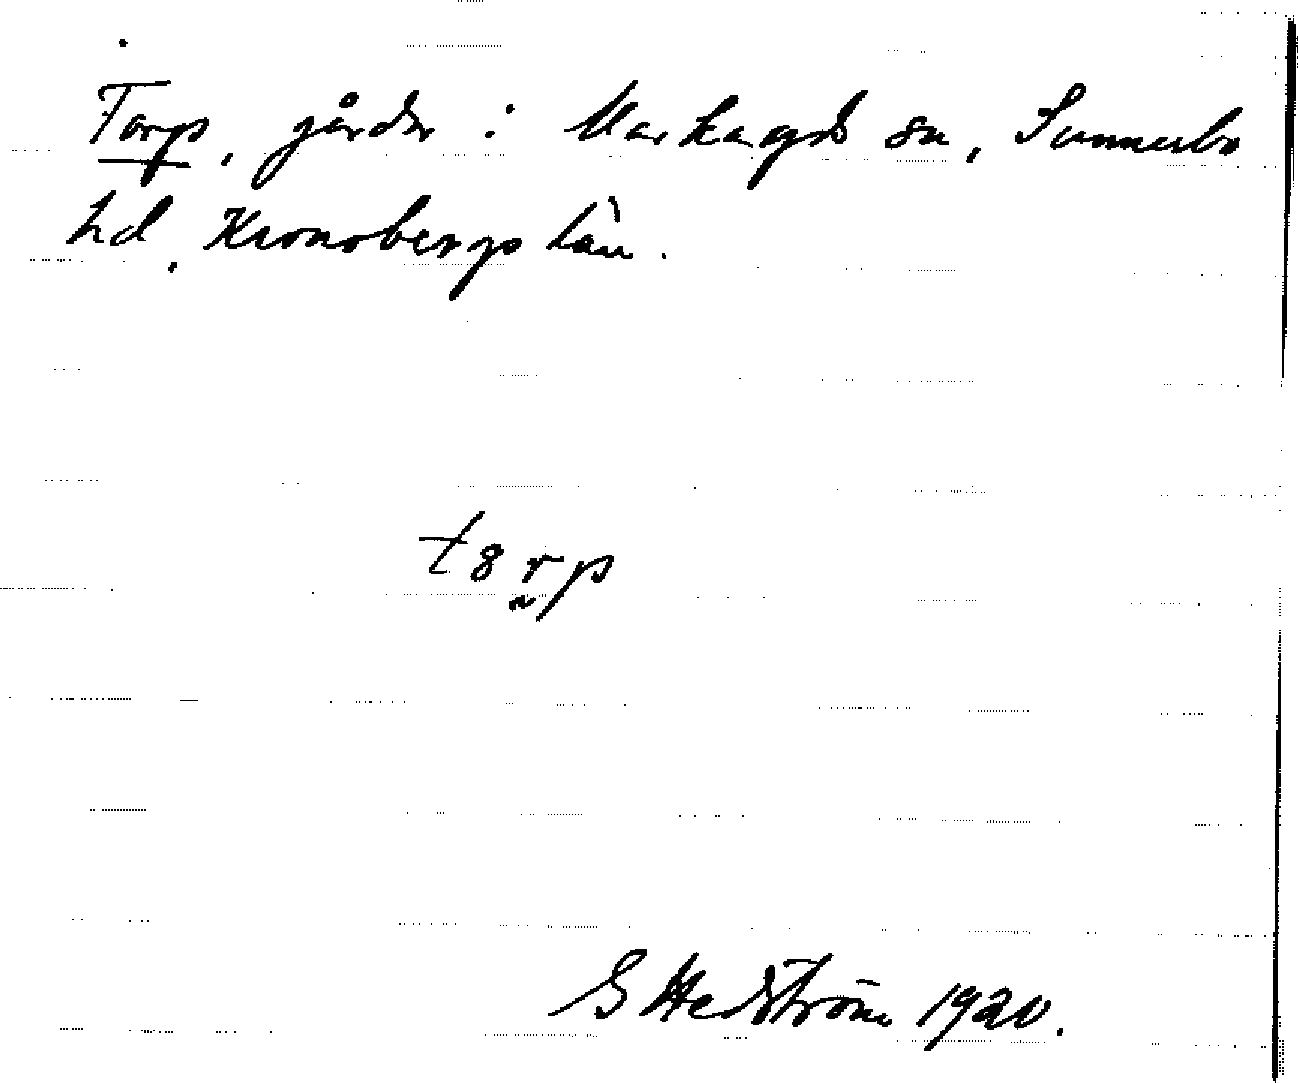 Torp, gårdar i Markaryds sn, Sunnerbo
hd, Kronobergs län.
tȣrp
G Hedström 1920.